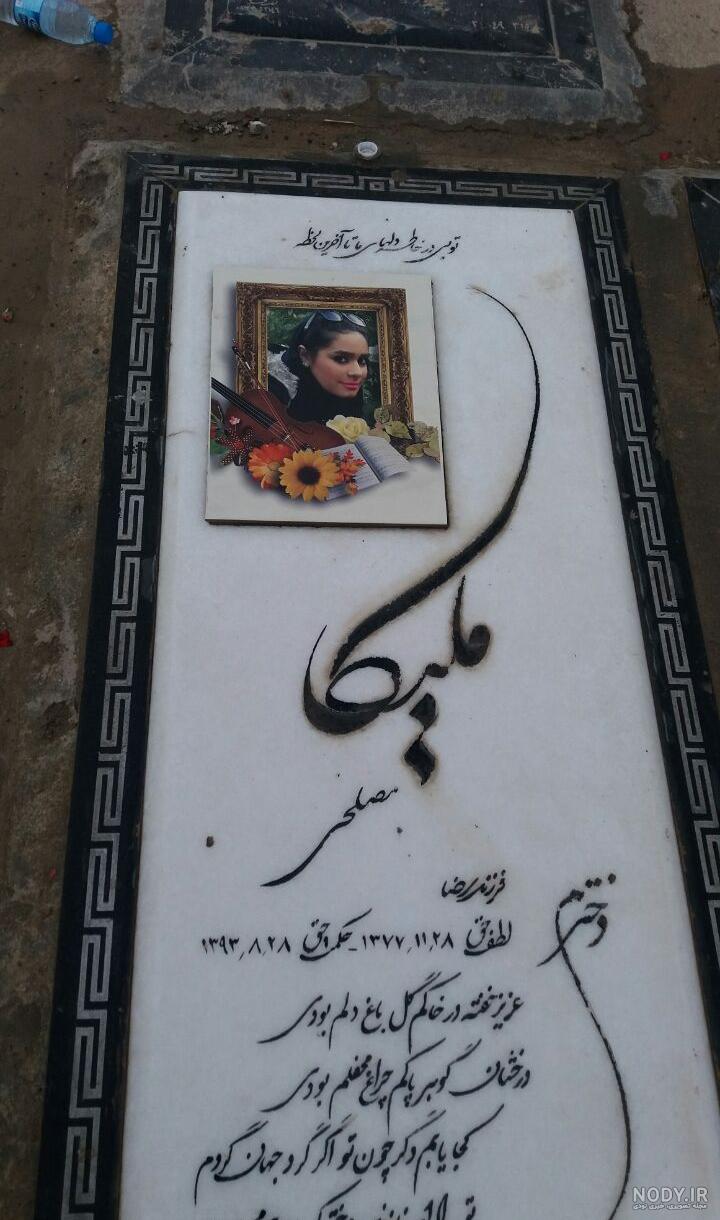 تویی در خاطر دلهای ما تا آخرین لحظه
ملیکا
مصلحی
فرزند رضا
لطف حق ۱۳۷۷٫۱۱٫۲۸ - حکم حق ۱۳۹۳٫۸٫۲۸
دخترم
عزیز خفته در خاکم گل باغ دلم بودی
درخشان گوهر پاکم چراغ محفلم بودی
کجا یابم دگر چون تو اگر گرد جهان گردم
NODY.IR
مجله تصویری، خبری نودی